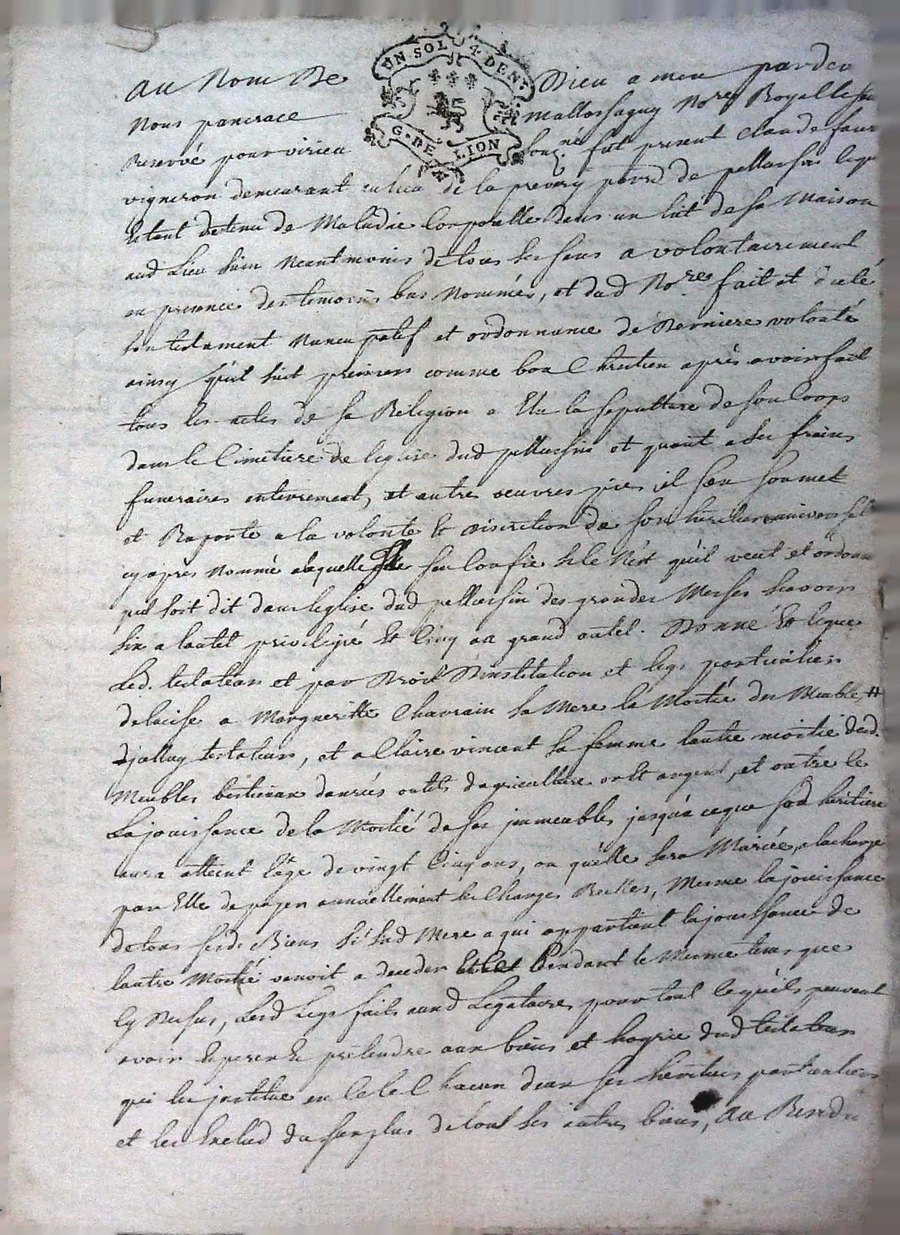 UN SOL 4 DEN.rs
G. DE LION
Au Nom De Dieu a men pardev
Nous pancrace Mallossagny No.re Royal
Reservé pour virieu soup.né fut present claude faure
vigneron demeurant au lieu de la prevery par.sse de pellussin lequel
Etant detenu de Maladie Corporelle Dans un lit de sa Maison
aud Lieu sain Neantmoins de tous ses sens a volontairement
en presence des temoins bas Nommés, et dud No.re fait et dicté
son testament Nuncupatif et ordonnance de Derniere volonté
ainsy qu'il suit premierem comme bon Chretien après avoir fait
tous les actes de sa Religion a Elu la sepulture de son Corps
dans le Cimetiere de l'eglise dud pellussin et quant a ses frais
funeraires enterrement, et autres oeuvres pies il s'en soumet
et Raporte a la volonté Et discretion de son heritiere universelle
cy après Nommé a laquelle Il s'en Confie si Ce N'est qu'il veut et ordonne
qu'il soit dit dans l'eglise dud pellussin des grandes Messes scavoir
six a l'autel privilegié Et Cinq au grand autel. Donne Et legue
Led. testateur et par Droit D'institution et legs particulier
delaisse a Margueritte Chavrain sa Mere la Moitié des Meubles #
testateur, et a Claire vincent sa femme l'autre moitié desd.
Meubles bestiaux danrés outils d'agriculture or et argent, et outre Ce
La jouissance de la Moitié de ses immeubles jusqu'a ceque sad heritiere
aura atteint l'age de vingt Cinq ans, ou qu'elle sera Mariée, a la charge
par Elle de payer annuellement les Charges Reelles, Mesme la jouissance
de tous sesd. Biens si sad Mere a qui appartient la jouissance de
l'autre Moitié venoit a deceder Pendant le Mesme temps que
Cy Dessus, Lesd Legs faits auxd Legataires pour tout ce qu'els peuvent
avoir et pretendre aux biens et hoyrie dud testateur
qui les institue en Ce Chacun d'eux ses heritiers particuliers
et les Exclud du surplus de tout ses autres biens, Au Residu